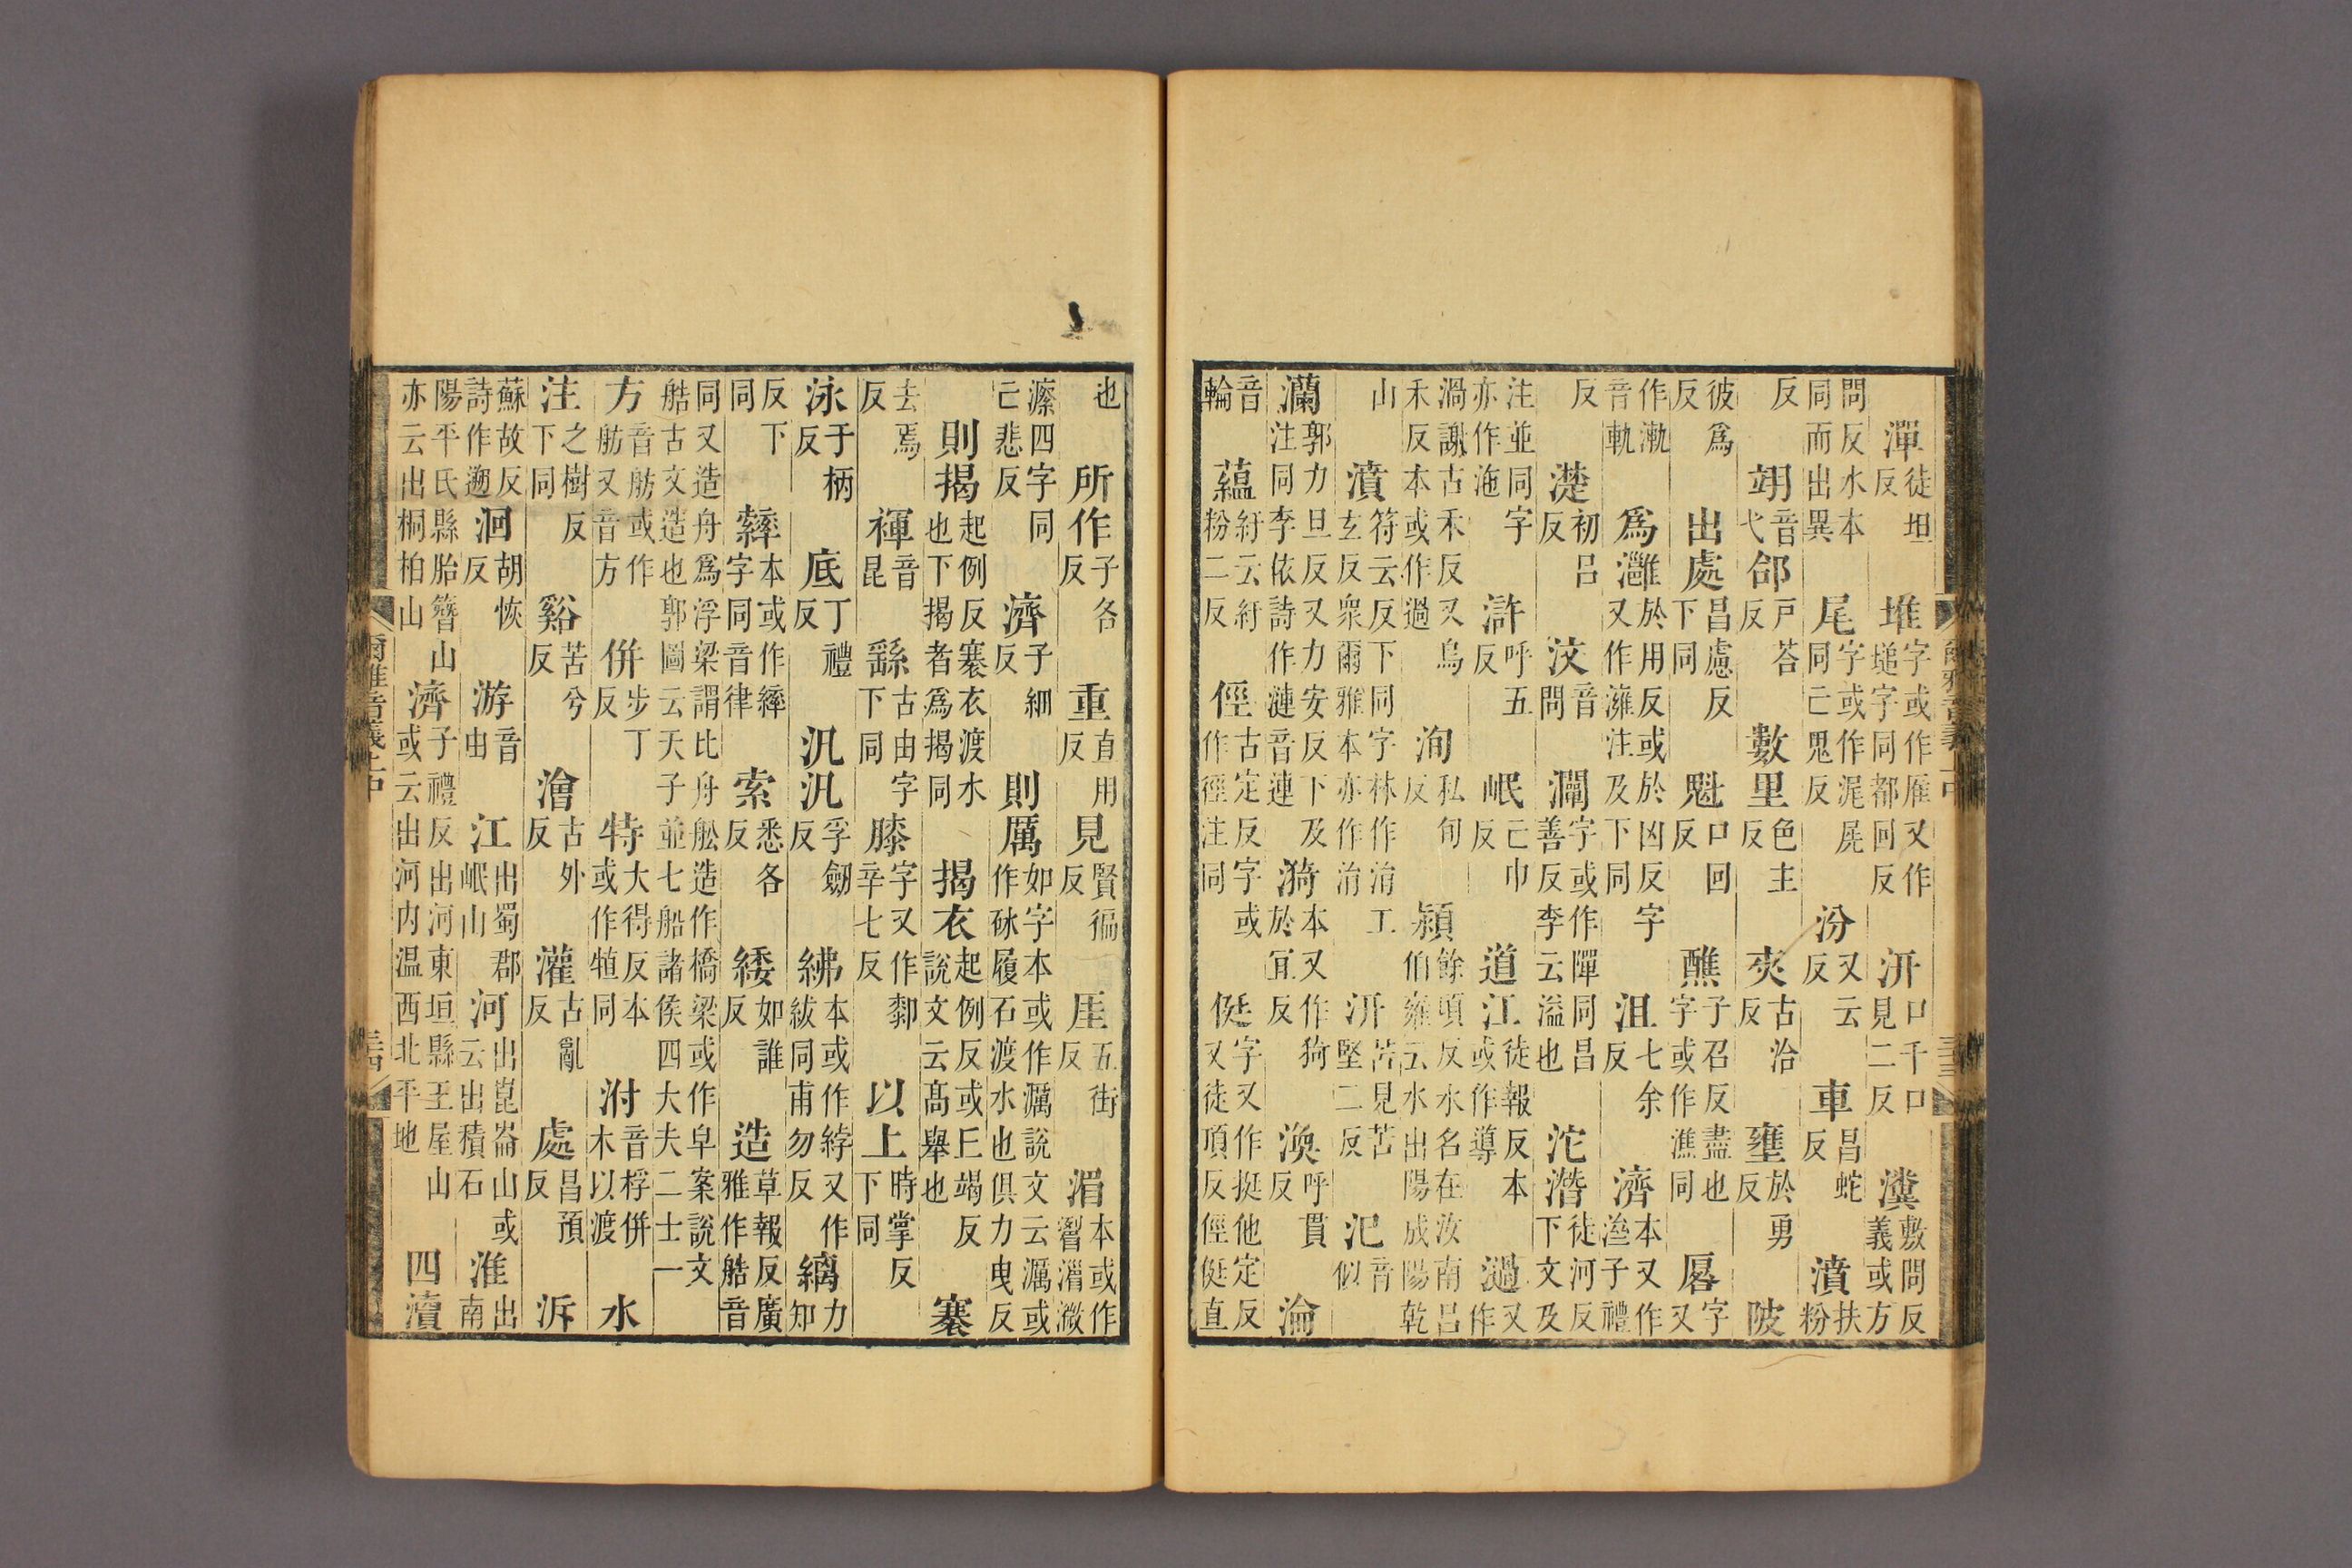 潬徒坦反 堆字或作雁又作塠字同都回反 汧口千口見二反 瀵敷問反義或方
問反水本同而出異 尾字或作浘同亡鬼反 汾又云反 車昌蛇反 瀵扶粉
反 翊音弋 郃戸荅反 數里色主反 夾古洽反 壅於勇反 陂
彼爲反 出處昌慮反下同 魁口回反 醮子召反盡也字或作潐同 㕇字又
作漸音軌 爲灉於用反或於凶反字又作澭注及下同 沮七余反 濟本又作㳠子禮
反 濋初呂反 汶音問 灛字或作同昌善反李云溢也 沱潛徒河反下文及
注並同字亦作沲 滸呼五反 岷亡巾反 道江徒報反本或作導 濄又作
渦謝古禾反又烏禾反本或作過 洵私旬反 潁餘頃反水名在汝南呂伯雍云水出陽成陽乾
山 濆符云反下同字林作涓工玄反眾爾雅本亦作涓 汧苦見苦堅二反 汜音似
瀾郭力旦反又力安反下及注同李依詩作漣音連 漪本又作猗於宜反 渙呼貫反 淪
音輪 蘊紆云紆粉二反 俓古定反字或作徑注同 侹字又作挺他定反又徒頂反俓侹直
爾雅音義上中
三十三
也 所作子各反 重直用反 見賢徧反 厓五街反 湄本或作湄溦
四字同亡悲反 濟子細反 則厲如字本或作濿說文云濿或作砅履石渡水也俱力曳反
則揭起例反褰衣渡水也下揭者爲揭同 揭衣起例反或巨竭反說文云髙舉也 褰
去焉反 褌音昆 繇古由字下同 膝字又作厀辛七反 以上時掌反下同
泳于柄反 底丁禮反 汎汎孚劒反 紼本或作綍又作紱同甫勿反 縭力知
反下同 繂本或作字同音律 索悉各反 緌如誰反 造草報反廣雅作艁音
同又造舟爲浮梁謂比舟舩造作橋梁或作皁案說文艁古文造也郭圖云天子並七船諸侯四大夫二士一
方音舫舫或作舫又音方 併步丁反 特大得反本或作犆同 泭音桴併木以渡 水
注之樹反下同 谿苦兮反 澮古外反 灌古亂反 處昌預反 泝
蘇故反詩作遡 洄胡恢反 游音由 江出蜀郡岷山 河出崑崙山或云出積石 淮出南
陽平氏縣胎簪山亦云出桐柏山 濟子禮反出河東垣縣王屋山或云出河内温西北平地 四瀆
爾雅音義上中
三十四